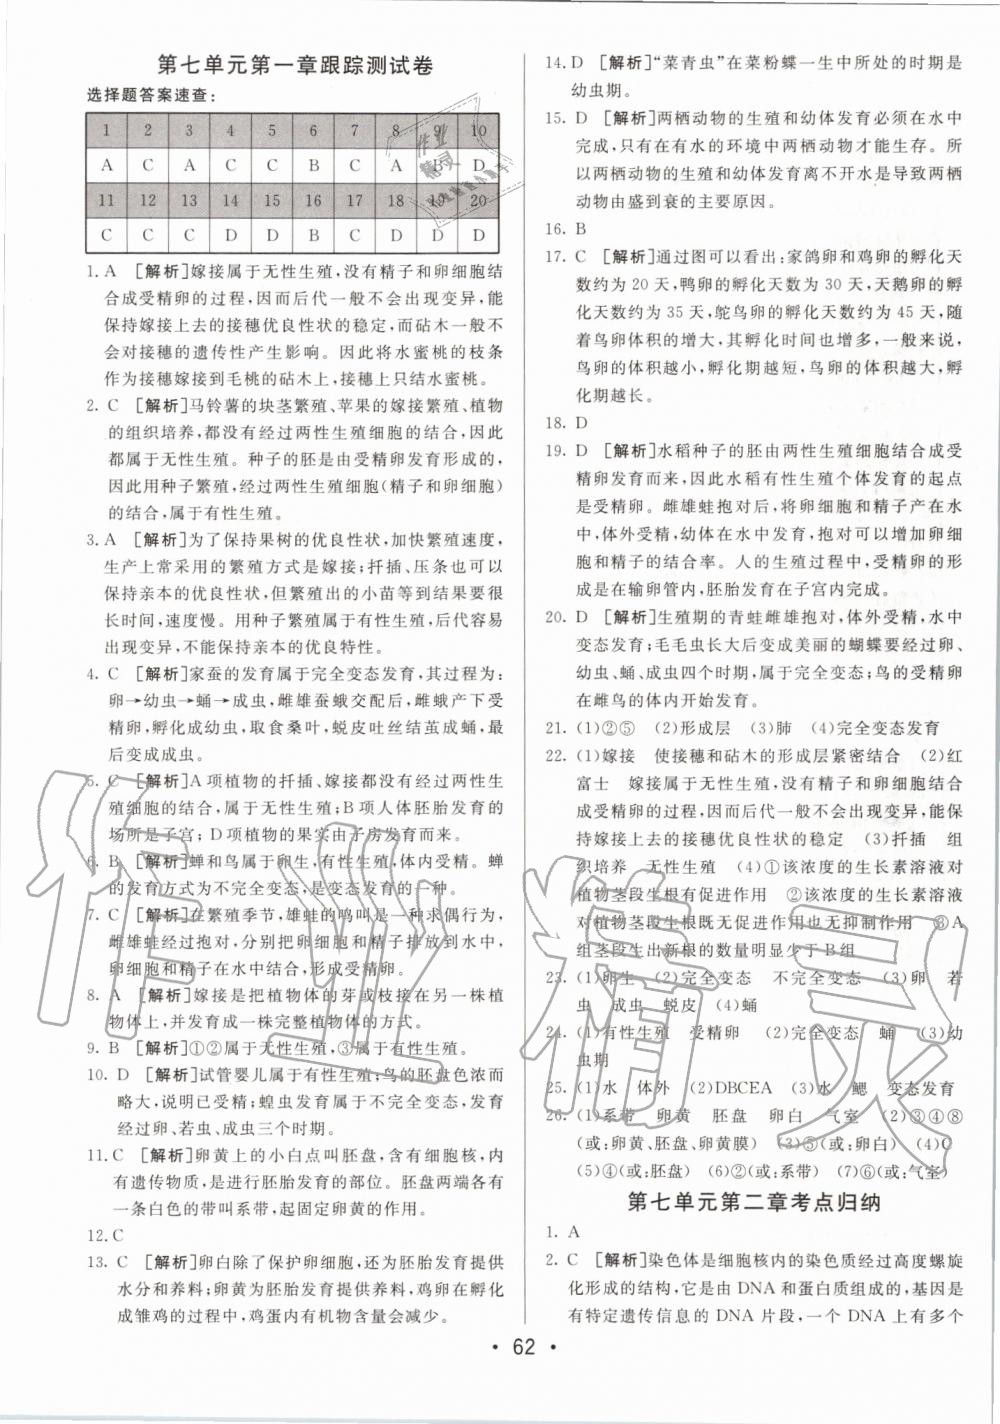 第七单元第一章跟踪测试卷
选择题答案速查:
1 2 3 4 5 6 7 8 9 10
A C A C C B C A B D
11 12 13 14 15 16 17 18 19 20
C C C D D B C D D D
1. A [解析]嫁接属于无性生殖,没有精子和卵细胞结
合成受精卵的过程,因而后代一般不会出现变异,能
保持嫁接上去的接穗优良性状的稳定,而砧木一般不
会对接穗的遗传性产生影响。因此将水蜜桃的枝条
作为接穗嫁接到毛桃的砧木上,接穗上只结水蜜桃。
2. C [解析]马铃薯的块茎繁殖、苹果的嫁接繁殖、植物
的组织培养,都没有经过两性生殖细胞的结合,因此
都属于无性生殖。种子的胚是由受精卵发育形成的,
因此用种子繁殖,经过两性生殖细胞(精子和卵细胞)
的结合,属于有性生殖。
3. A [解析]为了保持果树的优良性状,加快繁殖速度,
生产上常采用的繁殖方式是嫁接;扦插、压条也可以
保持亲本的优良性状,但繁殖出的小苗等到结果需要
时间,速度慢。用种子繁殖属于有性生殖,后代容易
出现变异,不能保持亲本的优良特性。
4. C [解析]家蚕的发育属于完全变态发育,其过程为:
卵→幼虫→蛹→成虫,雌雄蚕蛾交配后,雌蛾产下受
精卵,孵化成幼虫,取食桑叶,蜕皮吐丝结茧成蛹,最
后变成成虫。
5. C [解析]A项植物的扦插、嫁接都没有经过两性生
殖细胞的结合,属于无性生殖;B项人体胚胎发育的
场所是子宫;D项植物的果实由子房发育而来。
6. B [解析]蝉和鸟属于卵生,有性生殖,体内受精。蝉
的发育方式为不完全变态,是变态发育的一种。
7. C [解析]在繁殖季节,雄蛙的鸣叫是一种求偶行为,
雌雄蛙经过抱对,分别把卵细胞和精子排放到水中,
卵细胞和精子在水中结合,形成受精卵。
8. A [解析]嫁接是把植物体的芽或枝接在另一株植
物体上,并发育成一株完整植物体的方式。
9. B [解析]①②属于无性生殖,③属于有性生殖。
10. D [解析]试管婴儿属于有性生殖;鸟的胚盘色浓而
略大,说明已受精;蝗虫发育属于不完全变态,发育
经过卵、若虫、成虫三个时期。
11. C [解析]卵黄上的小白点叫胚盘,含有细胞核,内
有遗传物质,是进行胚胎发育的部位。胚盘两端各有
一条白色的带叫系带,起固定卵黄的作用。
12. C
13. C [解析]卵白除了保护卵细胞,还为胚胎发育提供
水分和养料;卵黄为胚胎发育提供养料,鸡卵在孵化
成雏鸡的过程中,鸡蛋内有机物含量会减少。
14. D [解析]“菜青虫”在菜粉蝶一生中所处的时期是
幼虫期。
15. D [解析]两栖动物的生殖和幼体发育必须在水中
完成,只有在有水的环境中两栖动物才能生存。所
以两栖动物的生殖和幼体发育离不开水是导致两栖
动物由盛到衰的主要原因。
16. B
17. C [解析]通过图可以看出:家鸽卵和鸡卵的孵化天
数约为 20 天,鸭卵的孵化天数为 30 天,天鹅卵的孵
化天数约为 35 天,鸵鸟卵的孵化天数约为 45 天,随
着鸟卵体积的增大,其孵化时间也增多,一般来说,
鸟卵的体积越小,孵化期越短,鸟卵的体积越大,孵
化期越长。
18. D
19. D [解析]水稻种子的胚由两性生殖细胞结合成受
精卵发育而来,因此水稻有性生殖个体发育的起点
是受精卵。雌雄蛙抱对后,将卵细胞和精子产在水
中,体外受精,幼体在水中发育,抱对可以增加卵细
胞和精子的结合率。人的生殖过程中,受精卵的形
成是在输卵管内,胚胎发育在子宫内完成。
20. D [解析]生殖期的青蛙雌雄抱对,体外受精,水中
变态发育;毛毛虫长大后变成美丽的蝴蝶要经过卵、
幼虫、蛹、成虫四个时期,属于完全变态;鸟的受精卵
在雌鸟的体内开始发育。
21. (1)②⑤ (2)形成层 (3)肺 (4)完全变态发育
22. (1)嫁接 使接穗和砧木的形成层紧密结合 (2)红
富士 嫁接属于无性生殖,没有精子和卵细胞结合
成受精卵的过程,因而后代一般不会出现变异,能保
持嫁接上去的接穗优良性状的稳定 (3)扦插 组
织培养 无性生殖 (4)①该浓度的生长素溶液对
植物茎段生根有促进作用 ②该浓度的生长素溶液
对植物茎段生根既无促进作用也无抑制作用 ③A
组茎段生出新根的数量明显少于B组
23. (1)卵生 (2)完全变态 不完全变态 (3)卵 若
虫 成虫 蜕皮 (4)蛹
24. (1)有性生殖 受精卵 (2)完全变态 蛹 (3)幼
虫期
25. (1)水 体外 (2)DBCEA (3)水 鳃 变态发育
26. (1)系带 卵黄 胚盘 卵白 气室 (2)③④⑧
(或:卵黄、胚盘、卵黄膜) (3)⑤(或:卵白) (4)C
(5)④(或:胚盘) (6)②(或:系带) (7)⑥(或:气室)
第七单元第二章考点归纳
1. A
2. C [解析]染色体是细胞核内的染色质经过高度螺旋
化形成的结构,它是由 DNA 和蛋白质组成的,基因是
有特定遗传信息的 DNA 片段,一个 DNA 上有多个
• 62 •
作业精灵